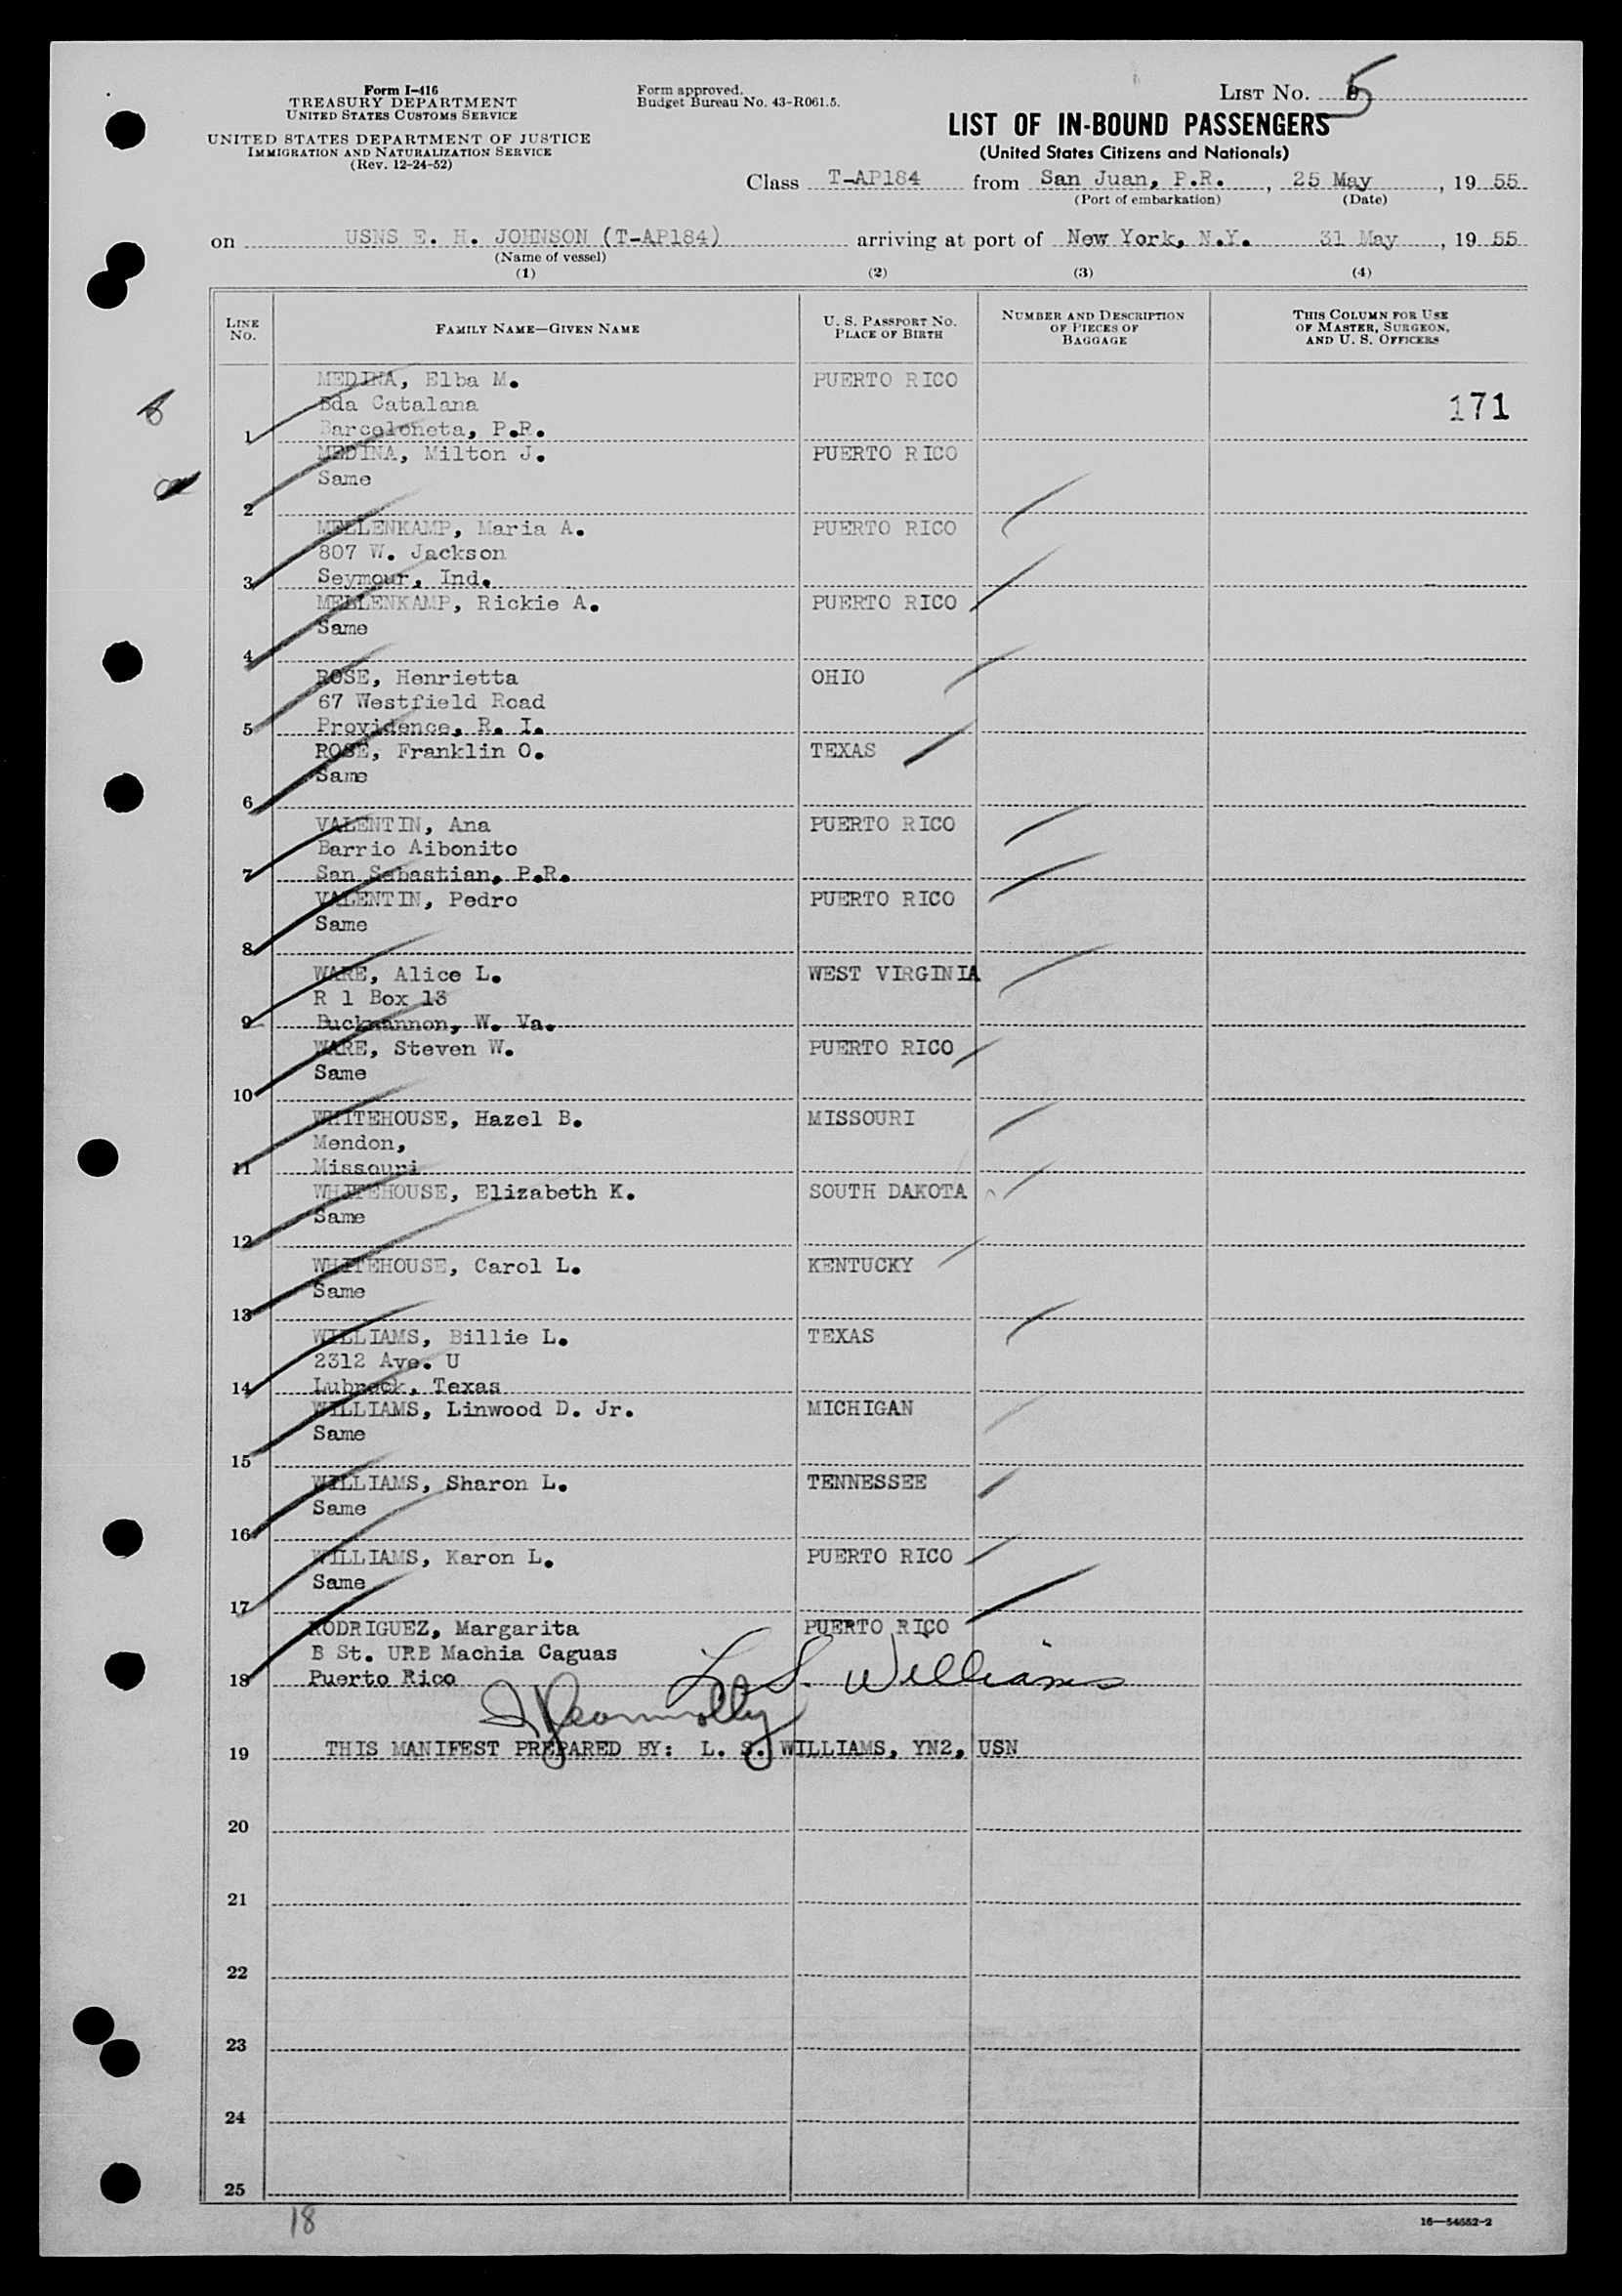 Form I-416
TREASURY DEPARTMENT
UNITED STATES CUSTOMS SERVICE
UNITED STATES DEPARTMENT OF JUSTICE
IMMIGRATION AND NATURALIZATION SERVICE
(Rev. 12-24-52)
Form approved.
Budget Bureau No. 43-R061.5.
LIST NO. 5
LIST OF IN-BOUND PASSENGERS
(United States Citizens and Nationals)
Class T-AP184 from San Juan, P.R., 25 May, 19 55
(Port of embarkation) (Date)
on USNS E. H. JOHNSON (T-AP184) arriving at port of New York, N.Y. 31 May, 19 55
(Name of vessel)
(1) (2) (3) (4)
LINE NO.
FAMILY NAME—GIVEN NAME
U. S. PASSPORT NO.
PLACE OF BIRTH
NUMBER AND DESCRIPTION
OF PIECES OF
BAGGAGE
THIS COLUMN FOR USE
OF MASTER, SURGEON,
AND U. S. OFFICERS
MEDINA, Elba M. PUERTO RICO
Bda Catalana 171
1 Barceloneta, P.R.
MEDINA, Milton J. PUERTO RICO
Same
2
MELLENKAMP, Maria A. PUERTO RICO
807 W. Jackson
3 Seymour, Ind.
MELLENKAMP, Rickie A. PUERTO RICO
Same
4
ROSE, Henrietta OHIO
67 Westfield Road
5 Providence, R. I.
ROSE, Franklin O. TEXAS
Same
6
VALENTIN, Ana PUERTO RICO
Barrio Aibonito
7 San Sebastian, P.R.
VALENTIN, Pedro PUERTO RICO
Same
8
WARE, Alice L. WEST VIRGINIA
R 1 Box 13
9 Buckhannon, W. Va.
WARE, Steven W. PUERTO RICO
Same
10
WHITEHOUSE, Hazel B. MISSOURI
Mendon,
11 Missouri
WHITEHOUSE, Elizabeth K. SOUTH DAKOTA
Same
12
WHITEHOUSE, Carol L. KENTUCKY
Same
13
WILLIAMS, Billie L. TEXAS
2312 Ave. U
14 Lubbock, Texas
WILLIAMS, Linwood D. Jr. MICHIGAN
Same
15
WILLIAMS, Sharon L. TENNESSEE
Same
16
WILLIAMS, Karon L. PUERTO RICO
Same
17
RODRIGUEZ, Margarita PUERTO RICO
B St. URB Machia Caguas
18 Puerto Rico
L. S. Williams
19 THIS MANIFEST PREPARED BY: L. S. WILLIAMS, YN2, USN
20
21
22
23
24
25
18
16—54652-2